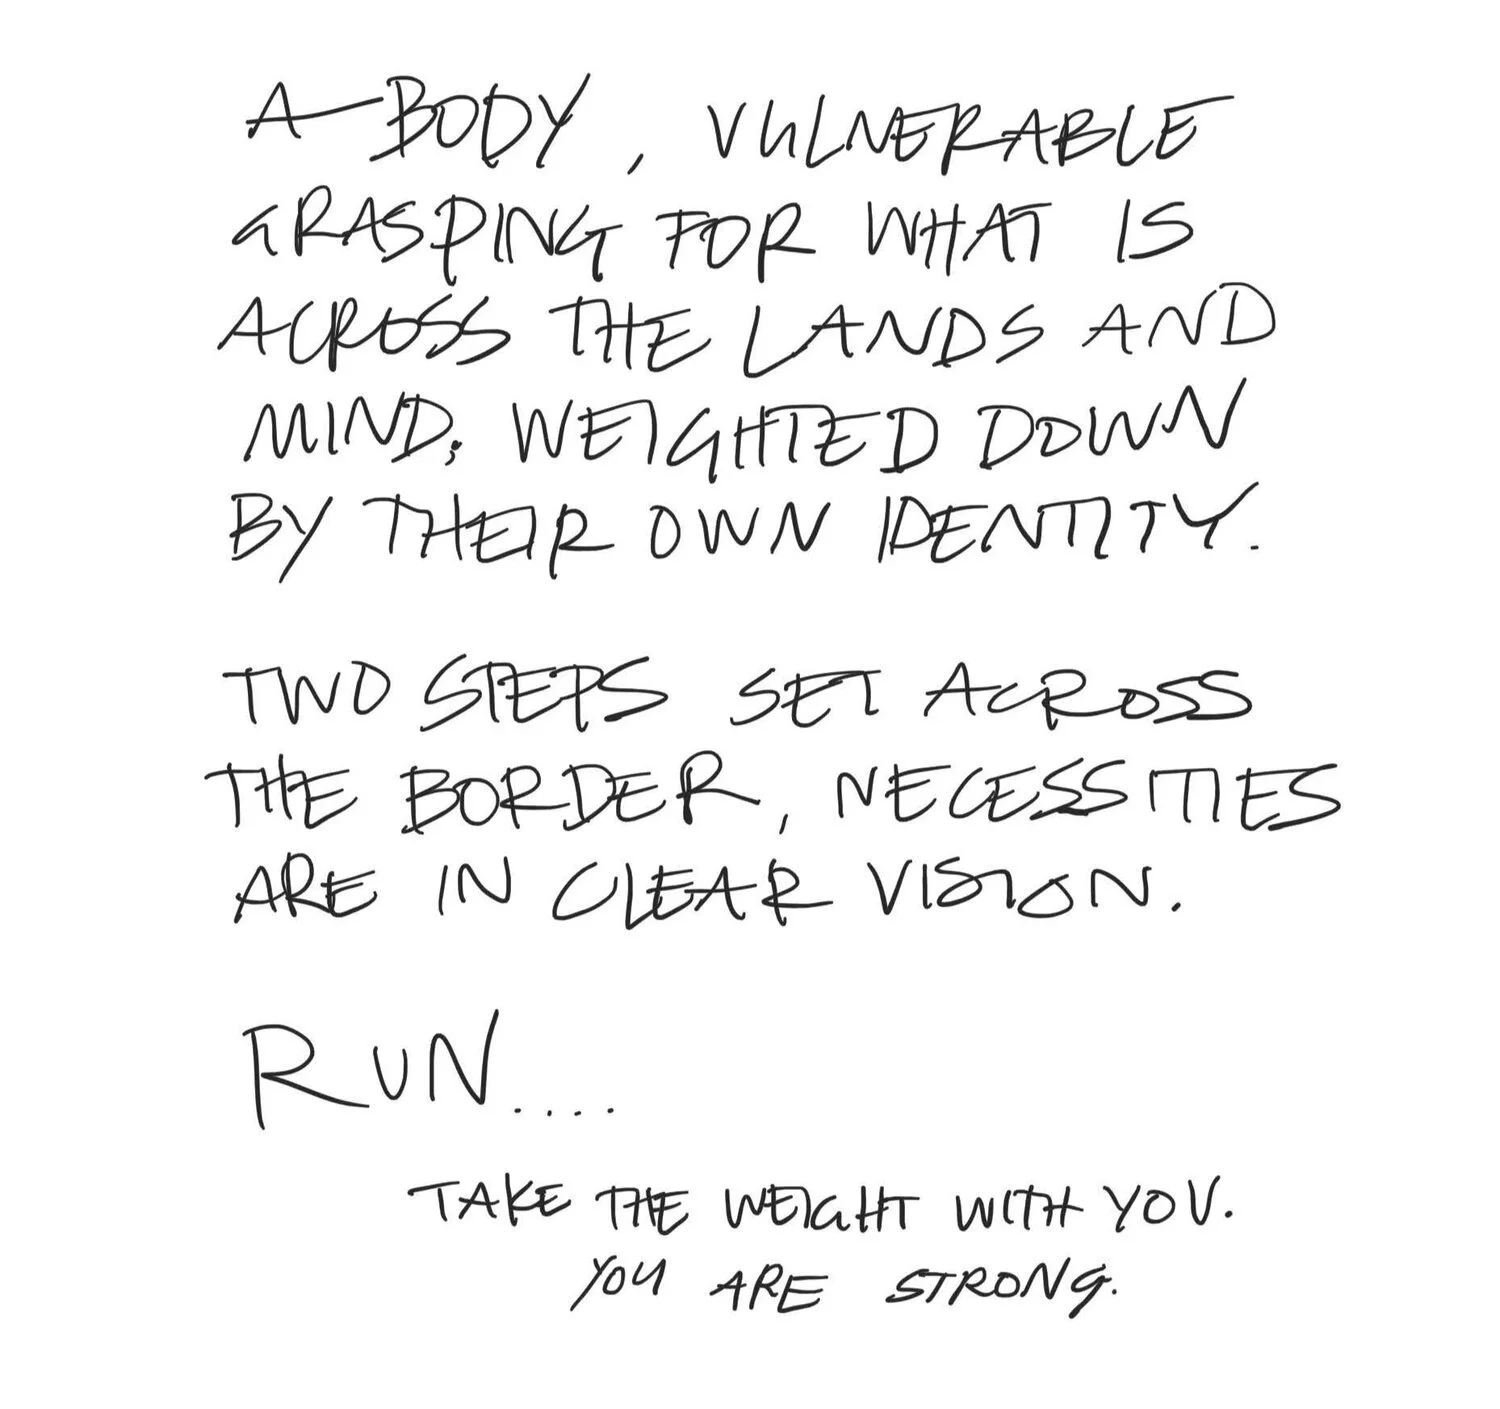 A BODY, VULNERABLE
GRASPING FOR WHAT IS
ACROSS THE LANDS AND
MIND; WEIGHTED DOWN
BY THEIR OWN IDENTITY.
TWO STEPS SET ACROSS
THE BORDER, NECESSITIES
ARE IN CLEAR VISION.
RUN....
TAKE THE WEIGHT WITH YOU.
YOU ARE STRONG.